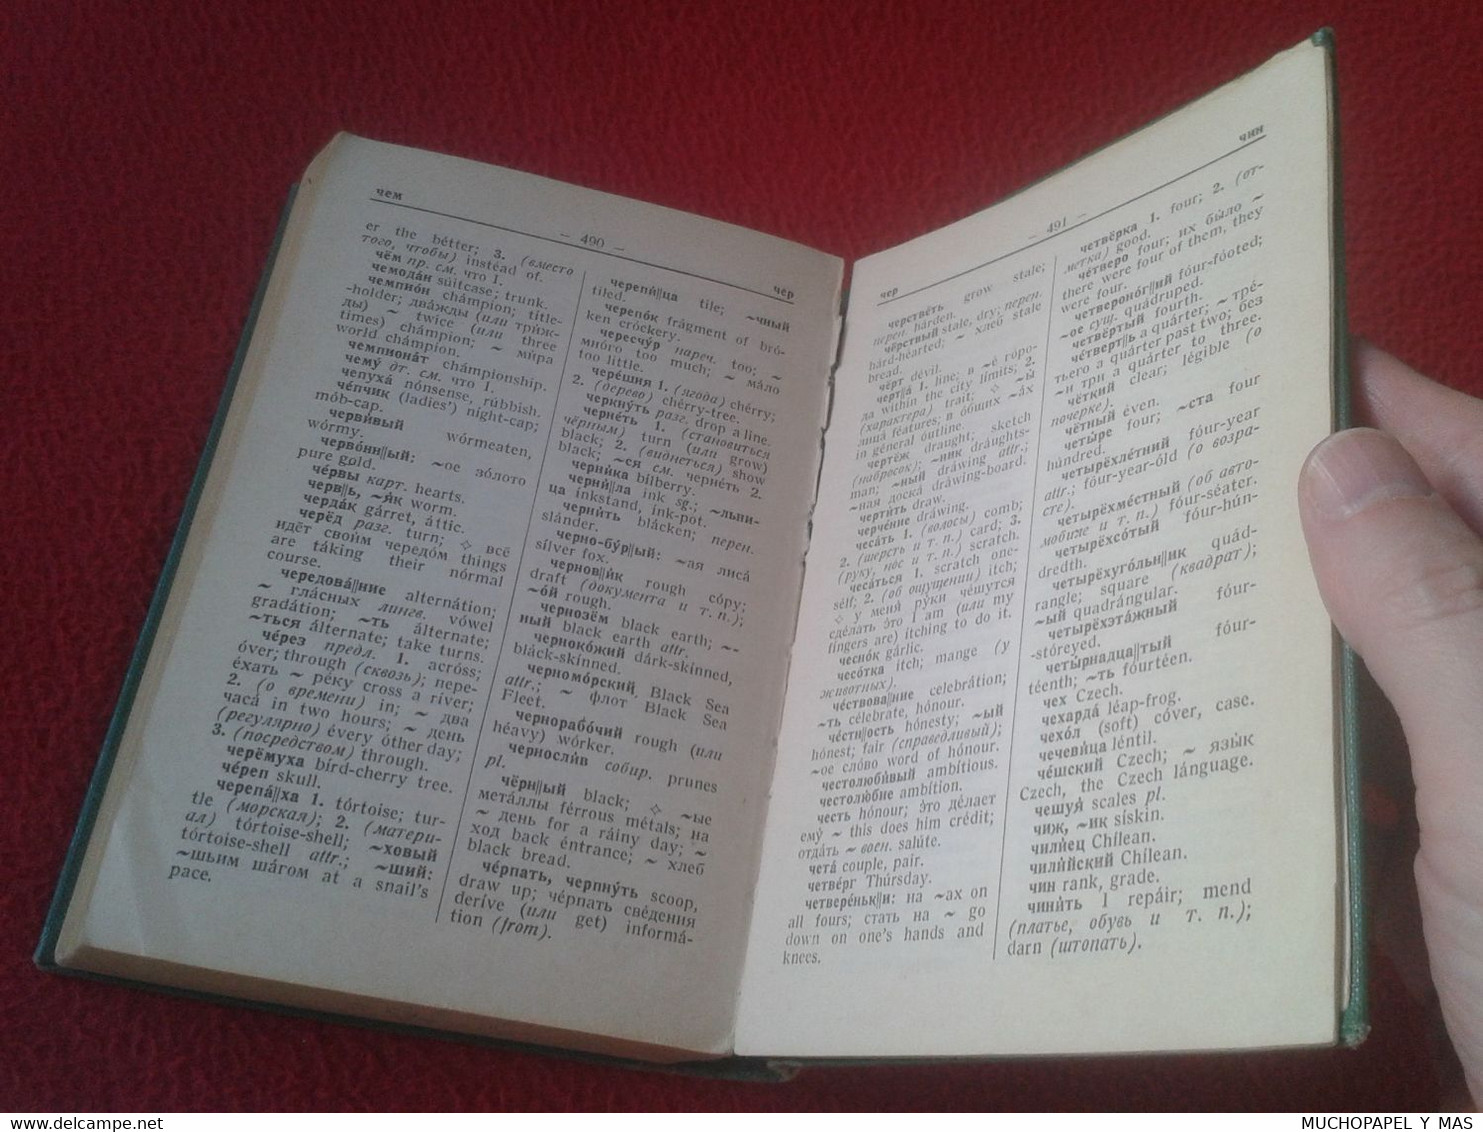 чем
— 490 —
чер
er the bétter; 3. (вместо
того, чтобы) instéad of.
чём пр. см. что I.
чемода́н súitcase; trunk.
чемпио́н chámpion; title-
-holder; два́жды (или три́ж-
ды) ~ twice (или three
times) chámpion; ~ ми́ра
world chámpion.
чемпиона́т chámpionship.
чему́ дт. см. что I.
чепуха́ nónsense, rúbbish.
че́пчик (ladies’) night-cap;
mób-cap.
черви́вый wórmeaten,
wórmy.
черво́нн||ый: ~ое зо́лото
pure gold.
че́рвы карт. hearts.
черв||ь, ~я́к worm.
черда́к gárret, áttic.
черёд разг. turn; ✧ всё
идёт свои́м чередо́м things
are táking their nórmal
course.
чередова́||ние alternátion;
~ гла́сных лингв. vówel
gradátion; ~ть álternate;
~ться álternate; take turns.
че́рез предл. 1. acróss;
óver; through (сквозь); пере-
е́хать ~ ре́ку cross a river;
2. (о времени) in; ~ два
часа́ in two hours; ~ день
(регулярно) évery óther day;
3. (посредством) through.
черёмуха bírd-cherry tree.
че́реп skull.
черепа́||ха 1. tórtoise; tur-
tle (морская); 2. (матери-
ал) tórtoise-shell; ~ховый
tórtoise-shell attr.; ~ший:
~шьим ша́гом at a snail’s
pace.
черепи́||ца tile; ~чный
tiled.
черепо́к frágment of bró-
ken cróckery.
чересчу́р нареч. too; ~
мно́го too much; ~ ма́ло
too little.
чере́шня 1. (ягода) chérry;
2. (дерево) chérry-tree.
черкну́ть разг. drop a line.
черне́ть 1. (становиться
чёрным) turn (или grow)
black; 2. (виднеться) show
black; ~ся см. черне́ть 2.
черни́ка bilberry.
черни́||ла ink sg.; ~льни-
ца ínkstand, ink-pot.
черни́ть blácken; перен.
slánder.
черно-бу́р||ый: ~ая лиса́
sílver fox.
чернов||и́к rough cópy;
draft (документа и т. п.);
~о́й rough.
чернозём black earth; ~-
ный black earth attr.
чернокожий dárk-skinned,
bláck-skinned.
черномо́рский Black Sea
attr.; ~ флот Black Sea
Fleet.
чернорабо́чий rough (или
héavy) wórker.
черносли́в собир. prunes
pl.
чёрн||ый black; ✧ ~ые
мета́ллы férrous métals; на
~ день for a ráiny day; ~
ход back éntrance; ~ хлеб
black bread.
че́рпать, черпну́ть scoop,
draw up; че́рпать све́дения
deríve (или get) informá-
tion (from).
чер
— 491 —
чин
черстве́ть grow stale;
перен. hárden.
чёрствый stale, dry; перен.
hárd-héarted; ~ хлеб stale
bread.
чёрт dévil.
черт||а́ 1. line; в ~е́ го́ро-
да within the city límits; 2.
(характера) trait; ✧ ~ы́
лица́ féatures; в о́бщих ~а́х
in géneral óutline.
чертёж draught; sketch
(набросок); ~ник dráughts-
man; ~ный dráwing attr.;
~ная доска́ dráwing-board.
черти́ть draw.
черче́ние dráwing.
чеса́ть 1. (волосы) comb;
2. (шерсть и т. п.) card; 3.
(руку, нос и т. п.) scratch.
чеса́ться 1. scratch one-
sélf; 2. (об ощущении) itch;
✧ у меня́ ру́ки че́шутся
сде́лать э́то I am (или my
fíngers are) itching to do it.
чесно́к gárlic.
чесо́тка itch; mange (у
животных).
че́ствова||ние celebrátion;
~ть célebrate, hónour.
че́стн||ость hónesty; ~ый
hónest; fair (справедливый);
~ое сло́во word of hónour.
честолюби́вый ambítious.
честолю́бие ambítion.
честь hónour; э́то де́лает
ему́ ~ this does him crédit;
отда́ть ~ воен. salúte.
чета́ couple, pair.
четве́рг Thúrsday.
четвере́ньк||и: на ~ах on
all fours; стать на ~ go
down on one’s hands and
knees.
четвёрка 1. four; 2. (от-
метка) good.
че́тверо four; их бы́ло ~
there were four of them, they
were four.
четвероно́г||ий fóur-fóoted;
~ое сущ. quádruped.
четвёртый fourth.
че́тверт||ь a quárter; ~ тре́-
тьего a quárter past two; без
~и три a quárter to three.
чёткий clear; légible (о
почерке).
чётный éven.
четы́ре four; ~ста four
húndred.
четырёхле́тний fóur-year
attr.; fóur-year-óld (о возра-
сте).
четырёхме́стный (об авто-
мобиле и т. п.) fóur-séater.
четырёхсо́тый fóur-hún-
dredth.
четырёхуго́льн||ик quád-
rangle; square (квадрат);
~ый quadrángular.
четырёхэта́жный fóur-
-stóreyed.
четы́рнадца||тый fóur-
téenth; ~ть fóurtéen.
чех Czech.
чехарда́ léap-frog.
чехо́л (soft) cóver, case.
чечеви́ца léntil.
че́шский Czech; ~ язы́к
Czech, the Czech lánguage.
чешуя́ scales pl.
чиж, ~ик sískin.
чили́ец Chílean.
чили́йский Chilean.
чин rank, grade.
чини́ть I repáir; mend
(платье, обувь и т. п.);
darn (штопать).
MUCHOPAPEL Y MAS